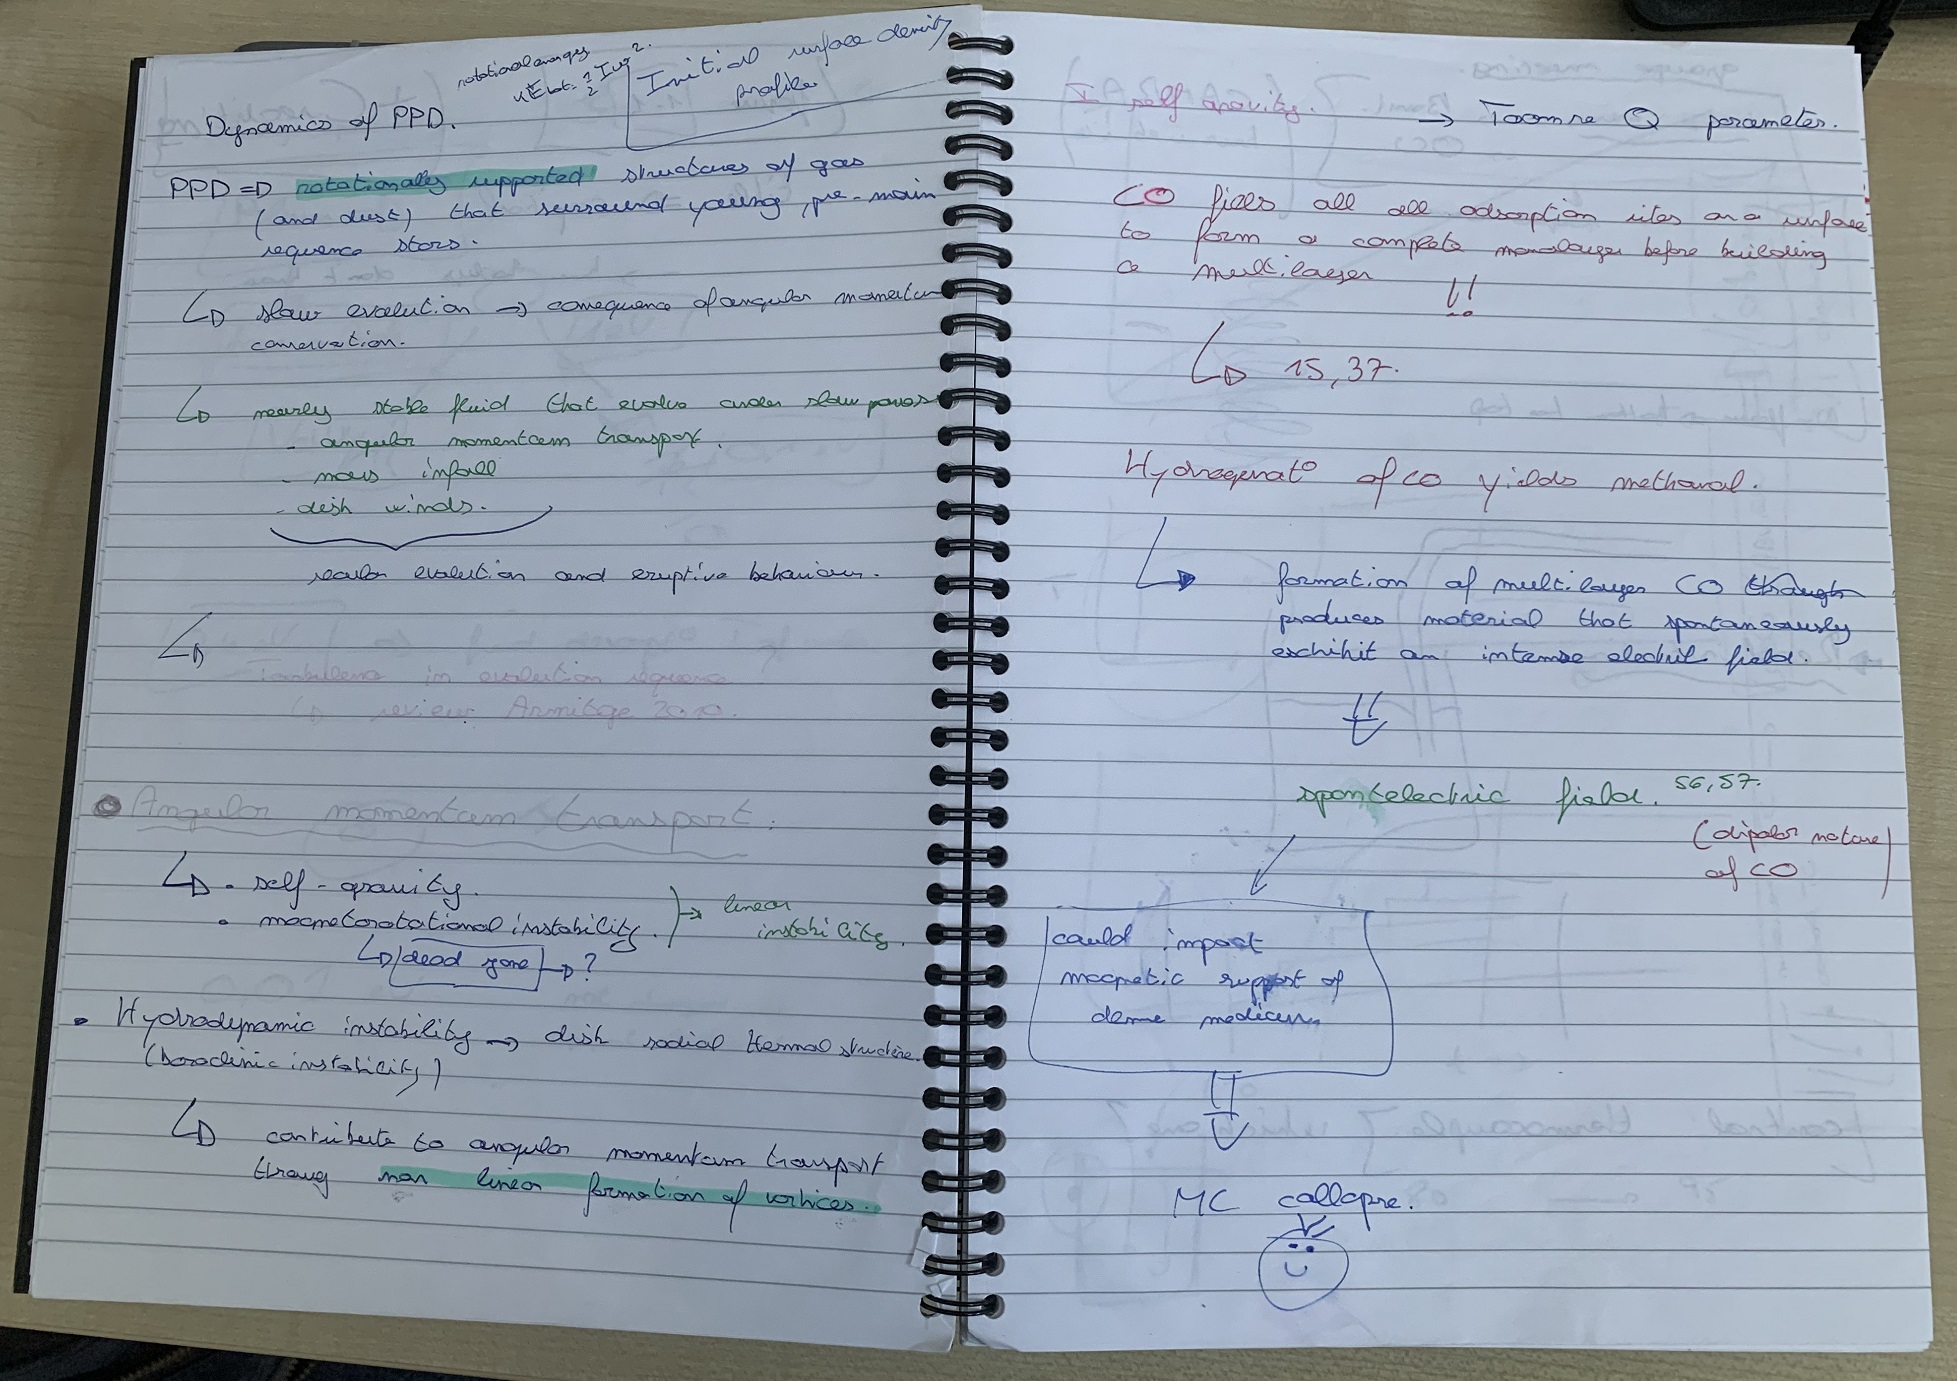 rotational energy
Erot = 1/2 Iω².
Initial surface density
profile
Dynamics of PPD.
PPD => rotationally supported structures of gas
(and dust) that surround young, pre-main
sequence stars.
slow evolution → consequence of angular momentum
conservation.
nearly stable fluid that evolve under slow
- angular momentum transport.
- mass infall
- disk winds.
secular evolution and eruptive behaviour.
Turbulence in evolution sequence
review Armitage
Angular momentum transport.
• self-gravity.
• magnetorotational instability. → linear
instability.
dead zone → ?
• Hydrodynamic instability → disk radial thermal structure.
(baroclinic instability)
contribute to angular momentum transport
throug non linear formation of vortices.
I self gravity. → Toomre Q parameter.
CO fills all all adsorption sites on a surface
to form a complete monolayer before building
a multilayer
!!
15, 37.
Hydrogenat° of CO yields methanal.
formation of multilayer CO through
produces material that spontaneously
exhibit an intense electric field.
spontelectric field. 56, 57.
(dipolar nature)
of CO
could impact
magnetic support of
dense medium
MC collapse.